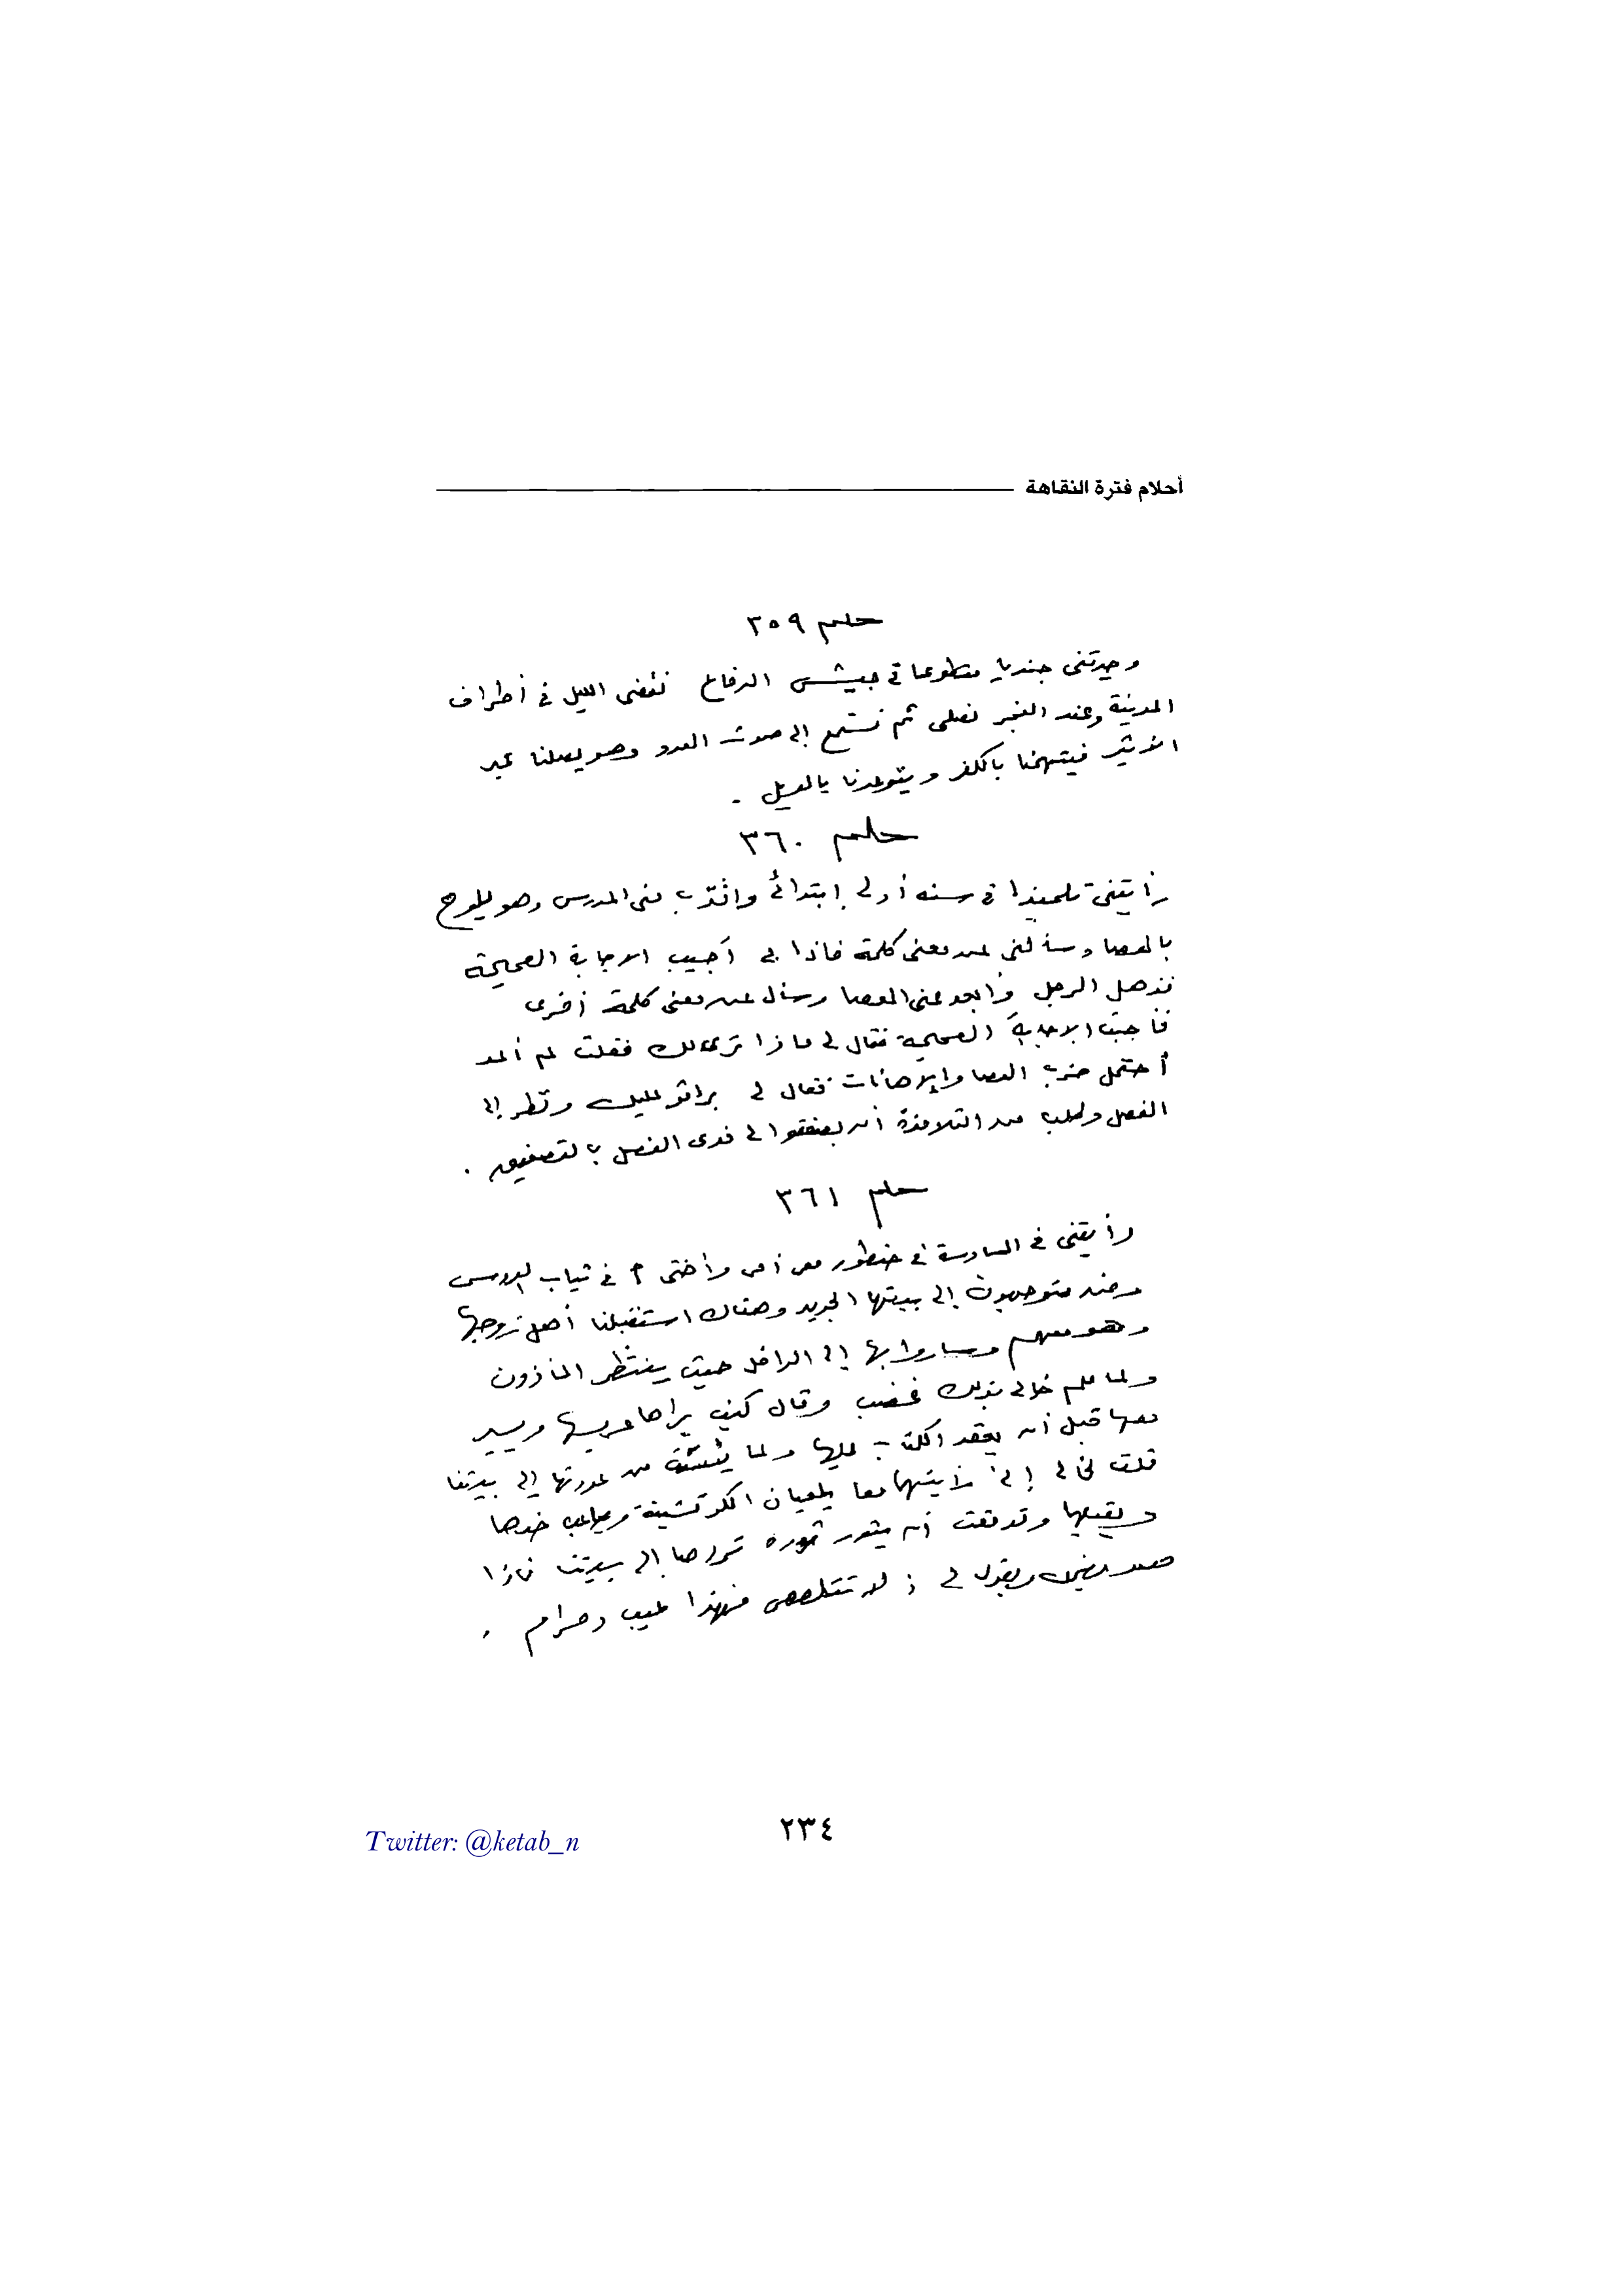 أحلام فترة النقاهة
حلم ٣٥٩
وجدتنى جنديا متطوعا فى جيش الدفاع نقضى الليل فى أطراف
المدينة وعند الفجر نصلى ثم نستمع إلى صوت العدو وهو يصلنا عبر
الأثير فيتهمنا بالكفر ويتوعدنا بالويل .
حلم ٣٦٠
رأيتنى تلميذا فى سنه أولى إبتدائى واقترب منى المدرس وهو يلوح
بالعصا وسألنى عن معنى كلمة فاذا بى أجيب الاجابة الصحيحة
فذهل الرجل وأبعد عنى العصا وسأل عن معنى كلمة أخرى
فأجبت الاجابة الصحيحة فقال لى ماذا جرى لك فقلت لم أعد
أحتمل ضرب العصا والإهانات فقال لى براڤو عليك ونظر إلى
الفصل وطلب من التلامذة أن يصفقوا لى فدوى الفصل بالتصفيق .
حلم ٣٦١
رأيتنى فى السادسة فى حنطور مع أمى وأختى م فى ثياب العروس
ونحن متوجهون إلى بيتها الجديد وهناك استقبلنا أهل زوجها
وهو معهم وساروا بها إلى الداخل حيث ينتظر المأذون
ولما علم خالى بذلك غضب وقال كيف يراها عريسها ويسير
معها قبل أن يعقد الكتاب عليها ولما يئست من عودتها إلى بيتنا
قلت لخالى إنى رأيتهما معا يلعبان الكوتشينة ويداعب خدها
ويقبلها وتوقعت أن يثور ثورة تردها إلى بيتنا فاذا
ويقول لى : لا تتلصص فهذا عيب وحرام .
٢٣٤
Twitter: @ketab_n